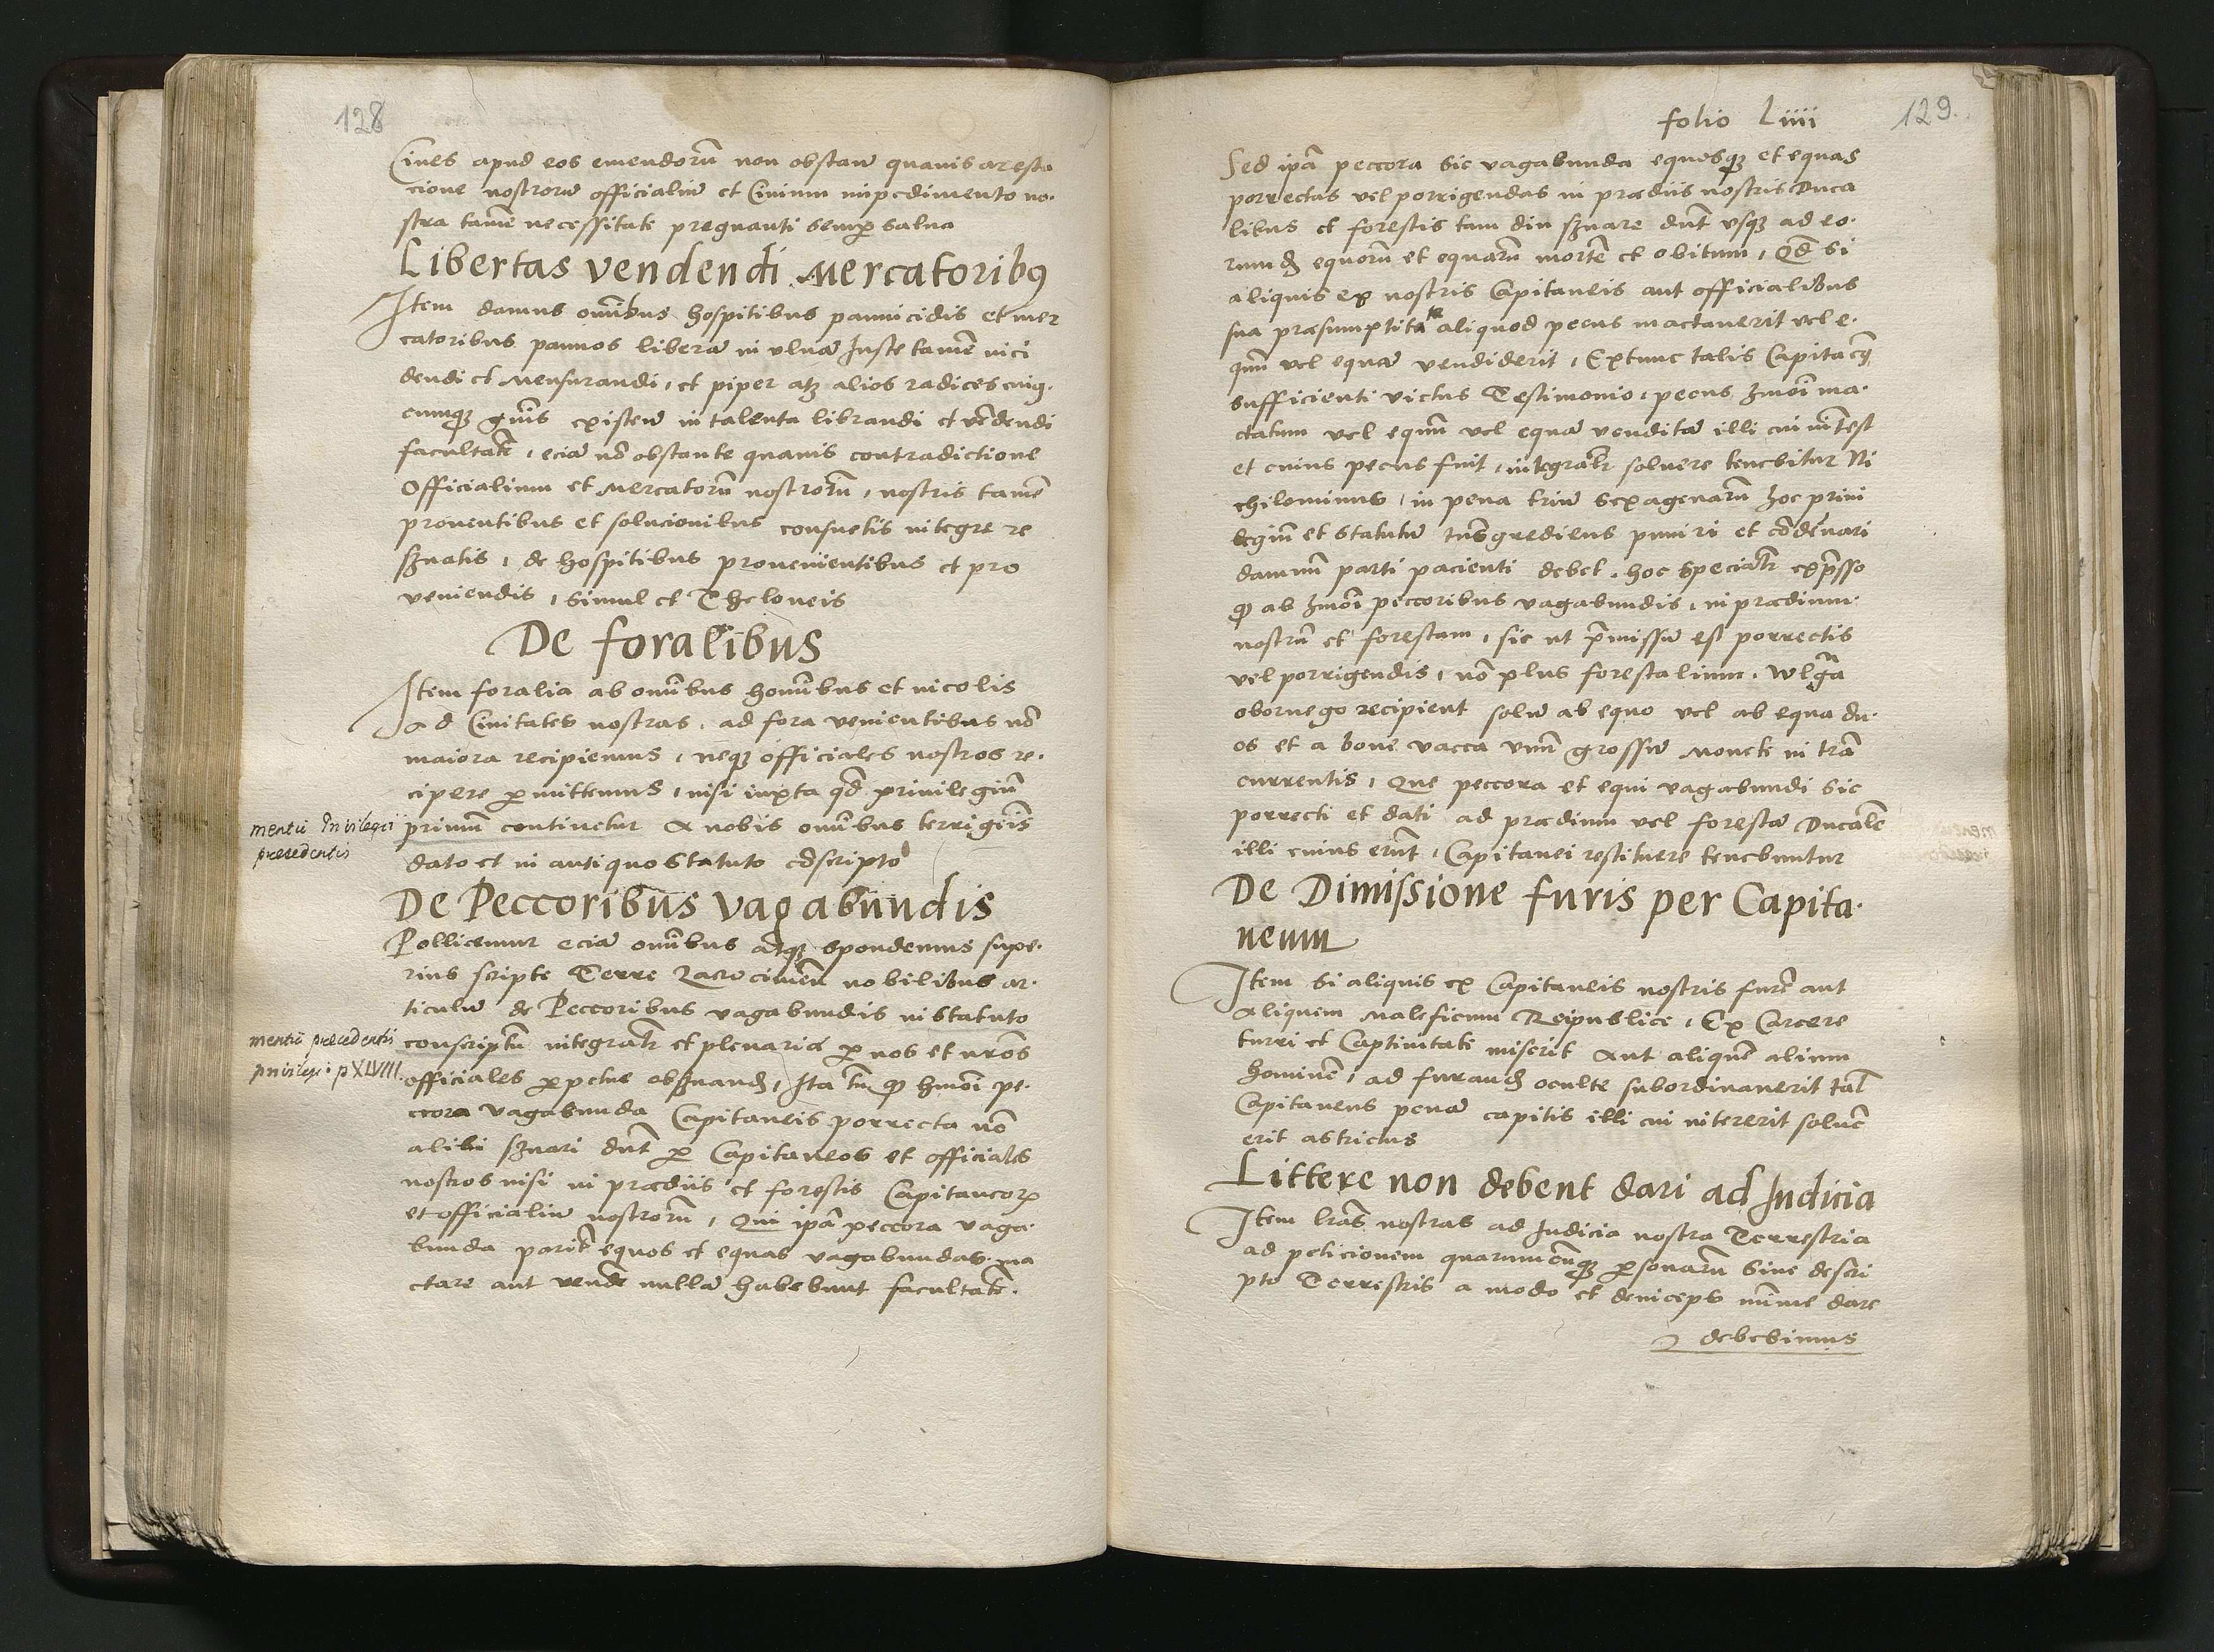 128
Ciues apud eos emendorũ non obstan̄ quauis aresta
cione nostrorum officialiũ et Ciuium impedimento no-
stra tamẽ necessitate pregnanti semp̱ salua
Libertas vendendi Mercatoribꝰ
Item damus om̃ibus hospitibus pannicidis et mer
catoribus pannos liberã in vlnã Juste tamẽ inci
dendi et Mensurandi, et piper atqꝫ alios radices cuig-
cumqꝫ gñis existeñ in talenta librandi et vẽdendi
facultatẽ, eciã nõ obstante quauis contradictione
Officialium et Mercatorũ nostrorũ, nostris tamẽ
prouentibus et solucionibus consuetis integre re
sẽuatis, de hospitibus prouenientibus et pro
veniendis, simul et Theloneis
De foralibus
Item foralia ab om̃ibus hom̃ibus et incolis
ad Ciuitates nostras, ad fora venientibus nõ
maiora recipiemus, neqꝫ officiales nostros re-
cipere ꝑmittemus, nisi iuxta qđ priuilegiũ
mentii Priuilegii
precedentis
primũ continetur a nobis om̃ibus terrigẽis
dato et in antiquo statuto cõscripto
De Peccoribus vagabundis
Pollicemur eciã om̃ibus atqꝫ spondemus supe-
rius scripte Terre Zatorien̄ nobilibus ar-
ticulũ de Peccoribus vagabundis in statuto
mentii precedentis
priuilegii p XLVIII.
conscriptũ integralr̃ et plenarie ꝑ nos et nr̃os
officiales ꝑpetue obsẽuand̃, Ita tñ ꝙ hmõi pe-
ccora vagabunda Capitaneis porrecta nõ
alibi sẽuari dñt ꝑ Capitaneos et officiales
nostros nisi in prædiis et forestis Capitaneoꝝ
et officialiũ nostrorũ, Qui ipã peccora vaga-
bunda paritẽ equos et equas vagabundas ma
ctare aut vendẽ nullã habebunt facultatẽ.
folio Liiii
129.
Sed ipã peccora sic vagabunda equosqꝫ et equas
porrectas vel porrigendas in prædiis nostris Duca
libus et forestis tam diu sẽuare dñt vsqꝫ ad eo-
rumd̃ equorũ et equarũ mortẽ et obitum, Qđ si
aliquis ex nostris Capitaneis aut officialibus
sua præsumptite aliquod pecus mactauerit vel e-
quũ vel equã vendiderit, Extunc talis Capitaneꝰ
sufficienti victus Testimonio, pecus hmõi ma-
ctatum vel equũ vel equã venditã illi cui intẽst
et cuius pecus fuit, integralr̃ soluere tenebitur Ni
chilominus, in pena triũ sexagenarũ hoc priui
legiũ et statutũ trãsgrediens puniri et cõdẽnari
damnũ parti pacienti debet. hoc specialr̃ exp̃sso
ꝙ ab hmõi peccoribus vagabundis, in prædium
nostrũ et forestam, sic ut p̃missũ est porrectis
vel porrigendis, nõ plus forestalium. wlgr̃
obornego recipient solũ ab equo vel ab equa du-
os et a boue vacca vnũ grossũ Monete in trã
currentis, Que peccora et equi vagabundi sic
porrecti et dati ad prædium vel forestã Ducalẽ
illi cuius erũt, Capitanei restituere tenebuntur
De Dimissione furis per Capita-
neum
Item si aliquis ex Capitaneis nostris furẽ aut
aliquem Maleficum Reipublice, Ex Carcere
turri et Captiuitate miserit Aut aliquẽ alium
hominẽ, ad furand̃ oculte subordinauerit tal̃
Capitaneus penã capitis illi cui intererit soluẽ
erit astrictus
Littere non debent dari ad Iudicia
Item lr̃as nostras ad Iudicia nostra Terrestria
ad peticionem quarumcũqꝫ ꝑsonarũ siue descri
pto Terrestris a modo et deinceps mĩme dare
debebimus